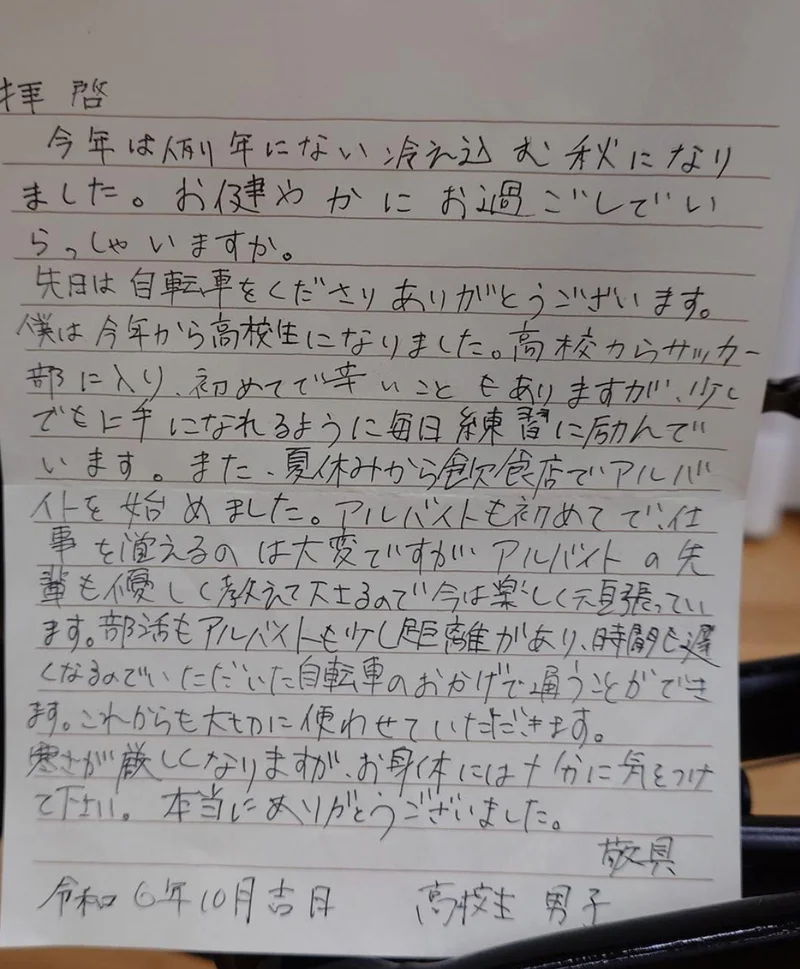 拝啓
今年は例年にない冷え込む秋になり
ました。お健やかにお過ごしでい
らっしゃいますか。
先日は自転車をくださりありがとうございます。
僕は今年から高校生になりました。高校からサッカー
部に入り、初めてで辛いこともありますが、少し
でも上手になれるように毎日練習に励んで
います。また、夏休みから飲食店でアルバ
イトを始めました。アルバイトも初めてで、仕
事を覚えるのは大変ですが、アルバイトの先
輩も優しく教えて下さるので今は楽しく頑張ってい
ます。部活もアルバイトも少し距離があり、時間も遅
くなるのでいただいた自転車のおかげで通うことができ
ます。これからも大切に使わせていただきます。
寒さが厳しくなりますが、お身体には十分に気をつけ
て下さい。本当にありがとうございました。
敬具
令和6年10月吉日 高校生 男子